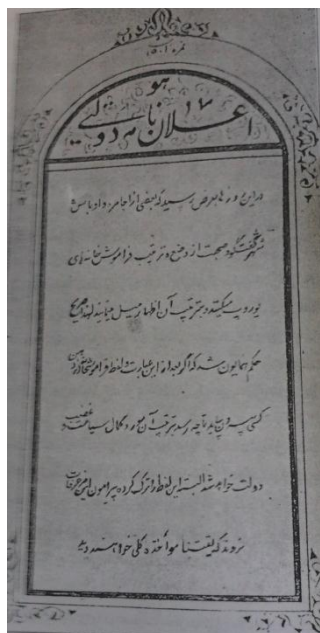 نمره
هو
اعلان نامه دولتی
در این روزها بعرض رسید که بعضی از اجامره و اوباش
شهر گفتگو و صحبت از وضع و ترتیب فراموشخانهای
یوروپ میکنند و بترتیب آن اظهار میل مینمایند لهذا صریح
حکم همایون شد که اگر بعد از این عبارت و لفظ فراموشخانه از دهن
کسی بیرون بیاید تا چه رسد بترتیب آن مورد کمال سیاست و غضب
دولت خواهد شد البته این لفظ را ترک کرده پیرامون این مزخرفات
نروند که یقینا مواخذه کلی خواهند دید